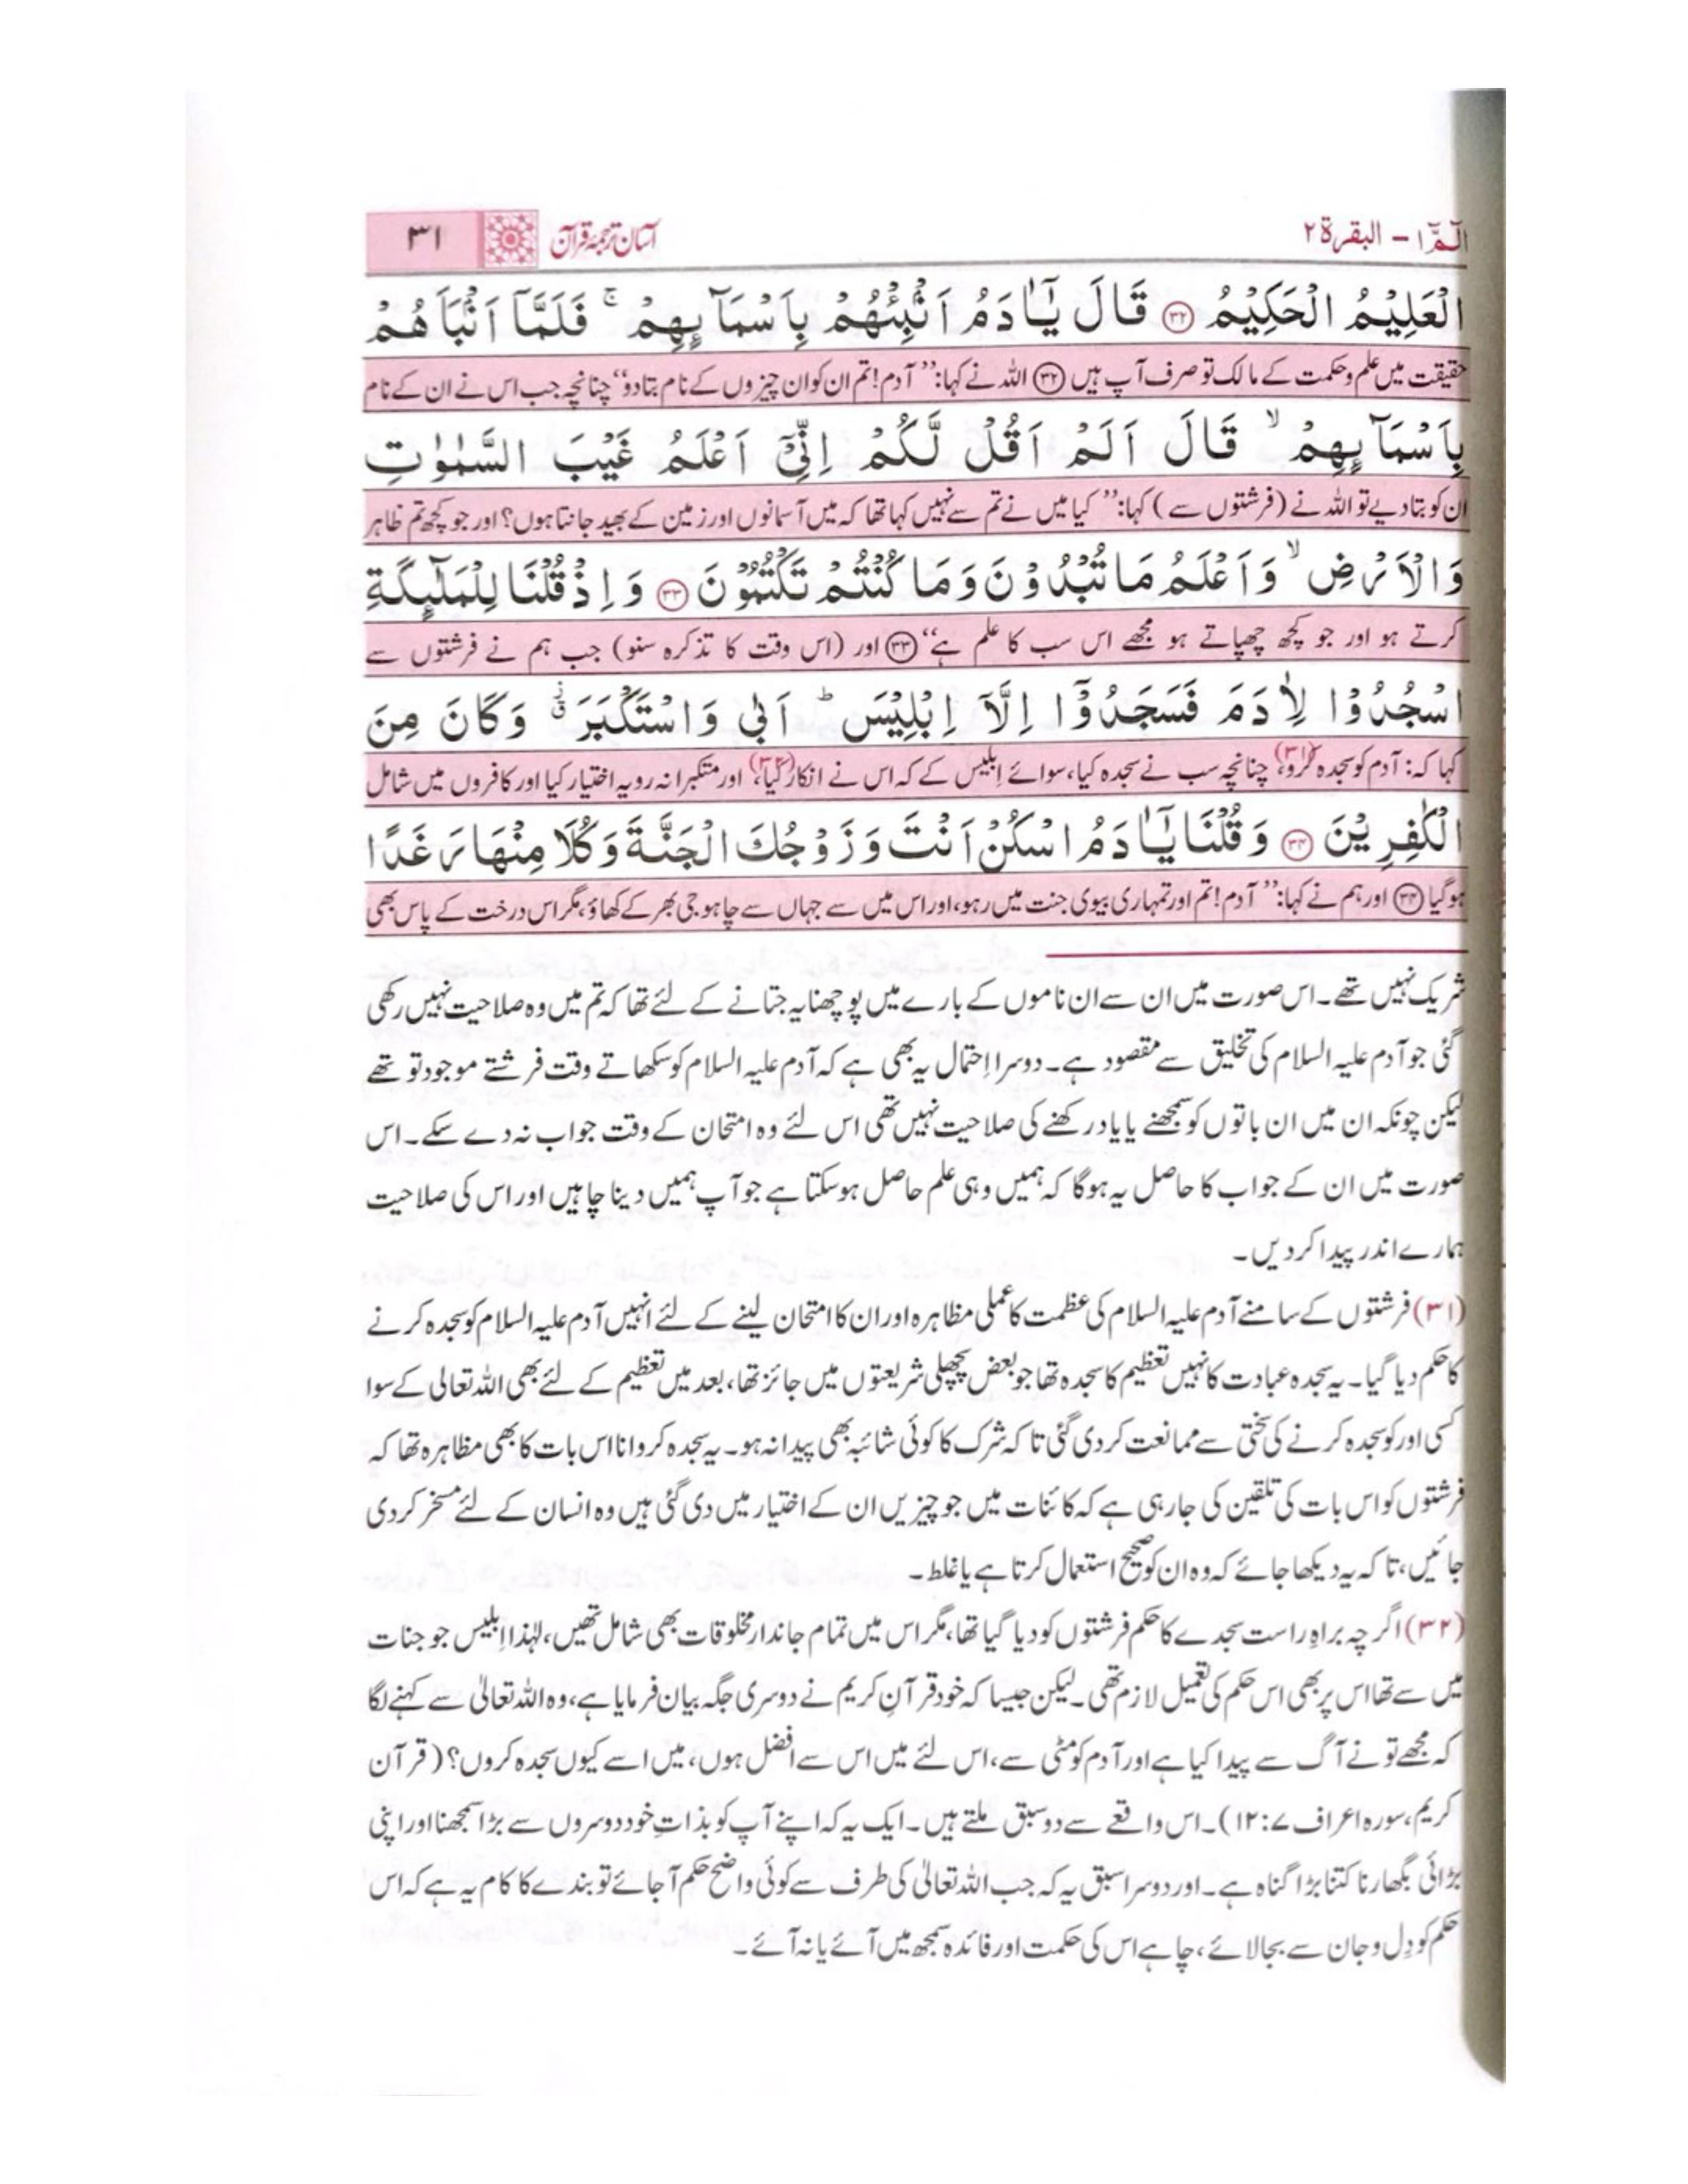 الٓمّٓ ۱ – البقرة ۲
آسان ترجمۂ قرآن
۳۱
الْعَلِيْمُ الْحَكِيْمُ ﴿۳۲﴾ قَالَ يٰٓاٰدَمُ اَنْۢبِئْهُمْ بِاَسْمَآىِٕهِمْ ۚ فَلَمَّآ اَنْۢبَاَهُمْ
حقیقت میں علم و حکمت کے مالک تو صرف آپ ہیں ﴿۳۲﴾ اللہ نے کہا: ’’آدم! تم ان کو ان چیزوں کے نام بتادو‘‘ چنانچہ جب اس نے ان کے نام
بِاَسْمَآىِٕهِمْ ۙ قَالَ اَلَمْ اَقُلْ لَّكُمْ اِنِّيْٓ اَعْلَمُ غَيْبَ السَّمٰوٰتِ
ان کو بتادیے تو اللہ نے (فرشتوں سے) کہا: ’’کیا میں نے تم سے نہیں کہا تھا کہ میں آسمانوں اور زمین کے بھید جانتا ہوں؟ اور جو کچھ تم ظاہر
وَالْاَرْضِ ۙ وَاَعْلَمُ مَا تُبْدُوْنَ وَمَا كُنْتُمْ تَكْتُمُوْنَ ﴿۳۳﴾ وَاِذْ قُلْنَا لِلْمَلٰٓىِٕكَةِ
کرتے ہو اور جو کچھ چھپاتے ہو مجھے اس سب کا علم ہے‘‘ ﴿۳۳﴾ اور (اس وقت کا تذکرہ سنو) جب ہم نے فرشتوں سے
اسْجُدُوْا لِاٰدَمَ فَسَجَدُوْٓا اِلَّآ اِبْلِيْسَ ؕ اَبٰى وَاسْتَكْبَرَ ۫ۗ وَكَانَ مِنَ
کہا کہ: آدم کو سجدہ کرو،(۳۱) چنانچہ سب نے سجدہ کیا، سوائے اِبلیس کے کہ اس نے انکار کیا،(۳۲) اور متکبرانہ رویہ اختیار کیا اور کافروں میں شامل
الْكٰفِرِيْنَ ﴿۳۴﴾ وَقُلْنَا يٰٓاٰدَمُ اسْكُنْ اَنْتَ وَزَوْجُكَ الْجَنَّةَ وَكُلَا مِنْهَا رَغَدًا
ہو گیا ﴿۳۴﴾ اور ہم نے کہا: ’’آدم! تم اور تمہاری بیوی جنت میں رہو، اور اس میں سے جہاں سے چاہو جی بھر کے کھاؤ، مگر اس درخت کے پاس بھی
شریک نہیں تھے۔ اس صورت میں ان سے ان ناموں کے بارے میں پوچھنا یہ جتانے کے لئے تھا کہ تم میں وہ صلاحیت نہیں رکھی
گئی جو آدم علیہ السلام کی تخلیق سے مقصود ہے۔ دوسرا اِحتمال یہ بھی ہے کہ آدم علیہ السلام کو سکھاتے وقت فرشتے موجود تو تھے
لیکن چونکہ ان میں ان باتوں کو سمجھنے یا یاد رکھنے کی صلاحیت نہیں تھی اس لئے وہ امتحان کے وقت جواب نہ دے سکے۔ اس
صورت میں ان کے جواب کا حاصل یہ ہوگا کہ ہمیں وہی علم حاصل ہوسکتا ہے جو آپ ہمیں دینا چاہیں اور اس کی صلاحیت
ہمارے اندر پیدا کردیں۔
(۳۱) فرشتوں کے سامنے آدم علیہ السلام کی عظمت کا عملی مظاہرہ اور ان کا امتحان لینے کے لئے انہیں آدم علیہ السلام کو سجدہ کرنے
کا حکم دیا گیا۔ یہ سجدہ عبادت کا نہیں تعظیم کا سجدہ تھا جو بعض پچھلی شریعتوں میں جائز تھا، بعد میں تعظیم کے لئے بھی اللہ تعالی کے سوا
کسی اور کو سجدہ کرنے کی سختی سے ممانعت کردی گئی تاکہ شرک کا کوئی شائبہ بھی پیدا نہ ہو۔ یہ سجدہ کروانا اس بات کا بھی مظاہرہ تھا کہ
فرشتوں کو اس بات کی تلقین کی جارہی ہے کہ کائنات میں جو چیزیں ان کے اختیار میں دی گئی ہیں وہ انسان کے لئے مسخر کردی
جائیں، تاکہ یہ دیکھا جائے کہ وہ ان کو صحیح استعمال کرتا ہے یا غلط۔
(۳۲) اگرچہ براہِ راست سجدے کا حکم فرشتوں کو دیا گیا تھا، مگر اس میں تمام جاندار مخلوقات بھی شامل تھیں، لہٰذا اِبلیس جو جنات
میں سے تھا اس پر بھی اس حکم کی تعمیل لازم تھی۔ لیکن جیسا کہ خود قرآنِ کریم نے دوسری جگہ بیان فرمایا ہے، وہ اللہ تعالیٰ سے کہنے لگا
کہ مجھے تو نے آگ سے پیدا کیا ہے اور آدم کو مٹی سے، اس لئے میں اس سے افضل ہوں، میں اسے کیوں سجدہ کروں؟ (قرآن
کریم، سورہ اعراف ۷:۱۲)۔ اس واقعے سے دو سبق ملتے ہیں۔ ایک یہ کہ اپنے آپ کو بذاتِ خود دوسروں سے بڑا سمجھنا اور اپنی
بڑائی بگھارنا کتنا بڑا گناہ ہے۔ اور دوسرا سبق یہ کہ جب اللہ تعالیٰ کی طرف سے کوئی واضح حکم آجائے تو بندے کا کام یہ ہے کہ اس
حکم کو دِل و جان سے بجالائے، چاہے اس کی حکمت اور فائدہ سمجھ میں آئے یا نہ آئے۔